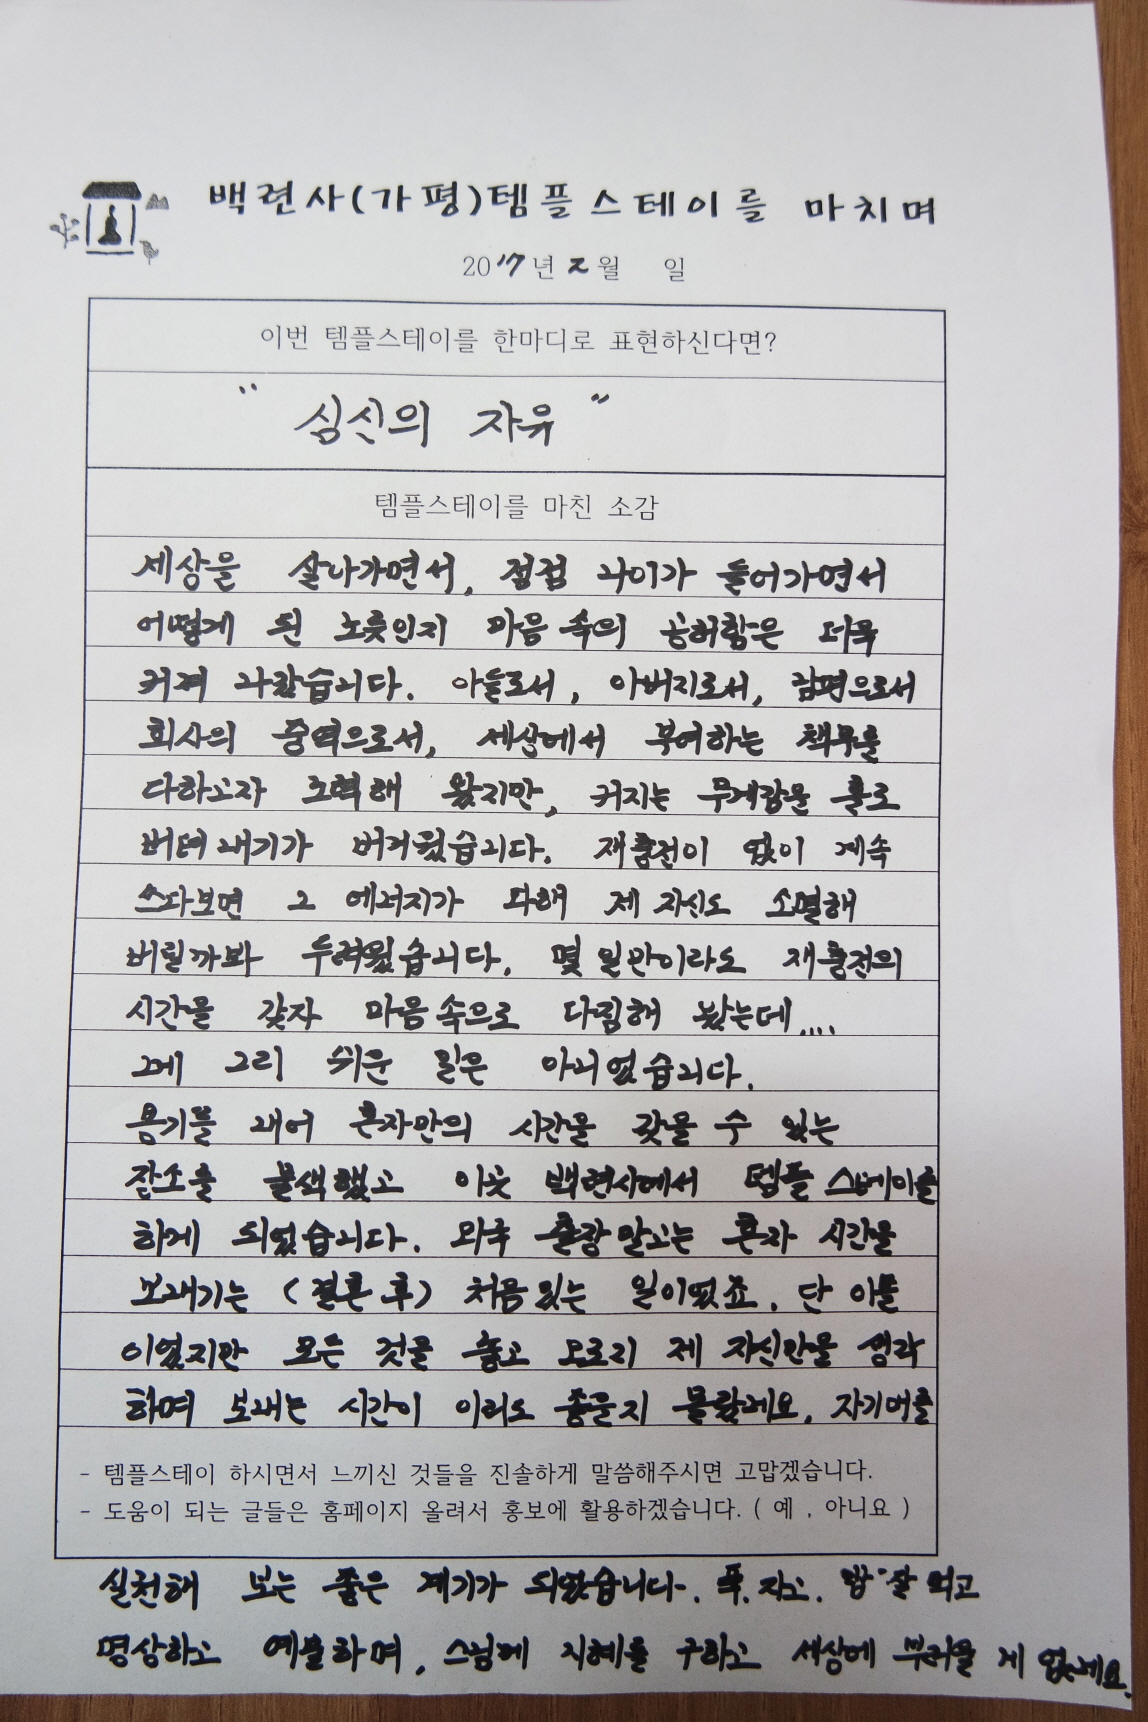 백련사(가평)템플스테이를 마치며
2017년 2월 일
이번 템플스테이를 한마디로 표현하신다면?
"심신의 자유"
템플스테이를 마친 소감
세상을 살아가면서, 점점 나이가 들어가면서
어떻게 된 노릇인지 마음 속의 공허함은 더욱
커져 나갔습니다. 아들로서, 아버지로서, 남편으로서
회사의 중역으로서, 세상에서 부여하는 책무를
다하고자 노력해 왔지만, 커지는 무게감을 홀로
버텨내기가 버거웠습니다. 재충전이 없이 계속
쓰다보면 그 에너지가 다해 제 자신도 소멸해
버릴까봐 두려웠습니다. 몇 일만이라도 재충전의
시간을 갖자 마음속으로 다짐해 놨는데....
그게 그리 쉬운 일은 아니었습니다.
용기를 내어 혼자만의 시간을 갖을 수 있는
장소를 물색했고 이곳 백련사에서 템플 스테이를
하게 되었습니다. 외국 출장 말고는 혼자 시간을
보내기는 (결혼 후) 처음있는 일이었죠. 단 이틀
이었지만 모든 것을 놓고 오로지 제 자신만을 생각
하며 보내는 시간이 이리도 좋을지 몰랐네요. 자기애를
- 템플스테이 하시면서 느끼신 것들을 진솔하게 말씀해주시면 고맙겠습니다.
- 도움이 되는 글들은 홈페이지 올려서 홍보에 활용하겠습니다. ( 예 , 아니요 )
실천해 보는 좋은 계기가 되었습니다. 푹. 자고. 밥 잘 먹고
명상하고 예불하며, 스님께 지혜를 구하고 세상에 부러울 게 없네요.